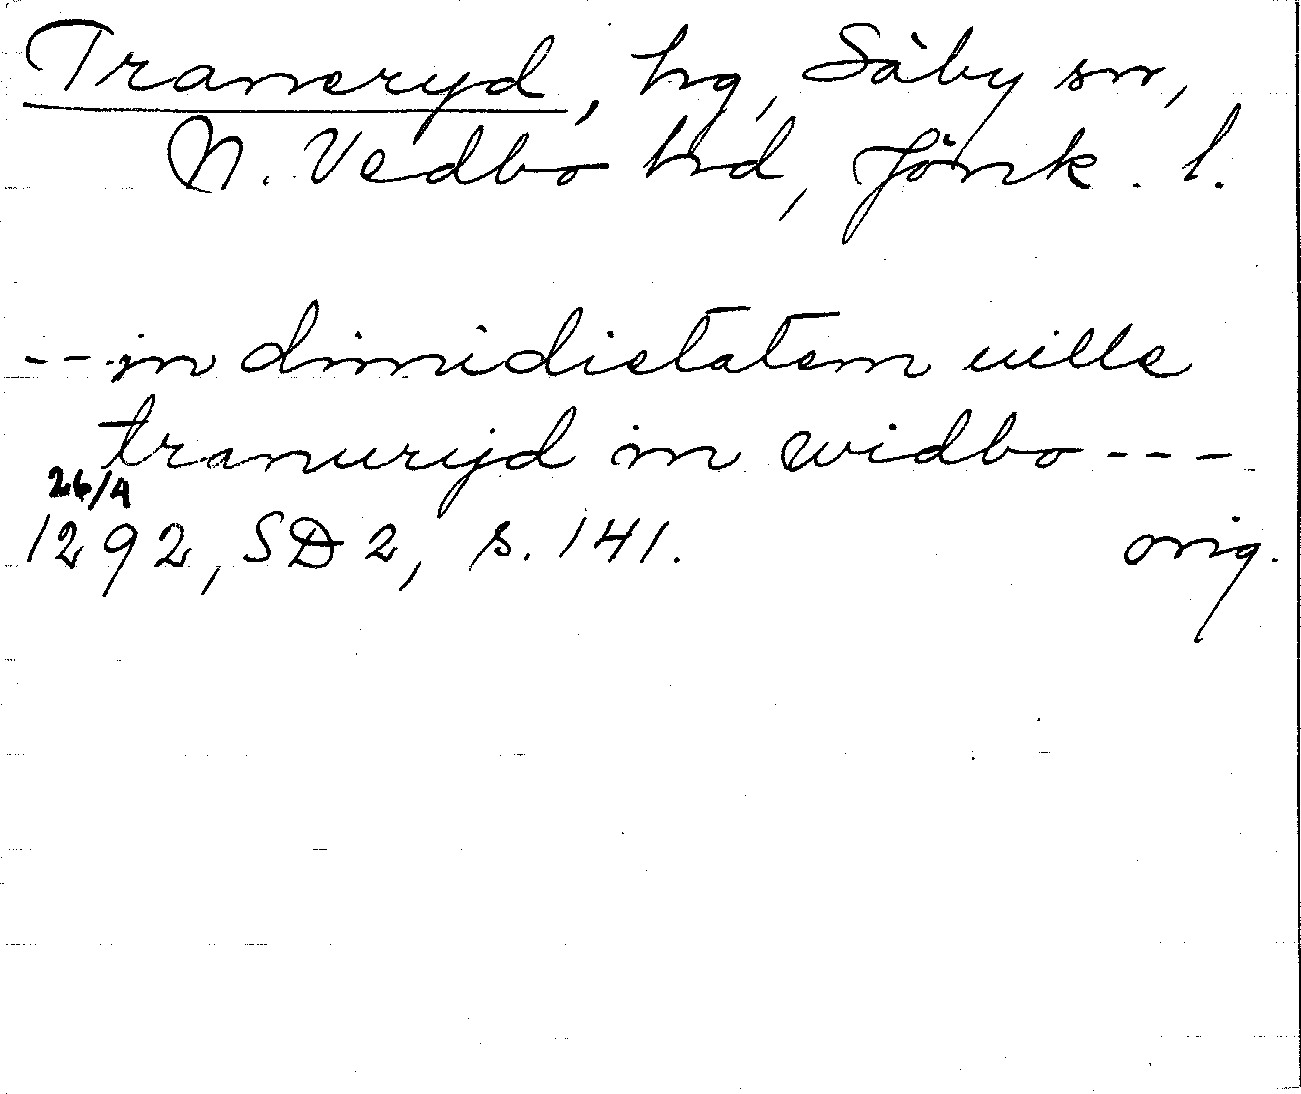 Traneryd, hg, Säby sn,
N. Vedbo hd, Jönk. l.
-- in dimidietatem uille
tranuryd in widbo ---
26/4
1292, SD 2, s. 141. orig.